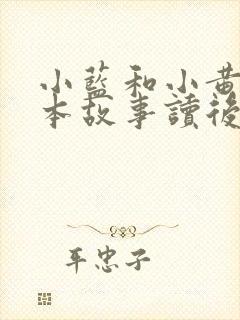 小藍和小黃
本故事讀後
平忠子